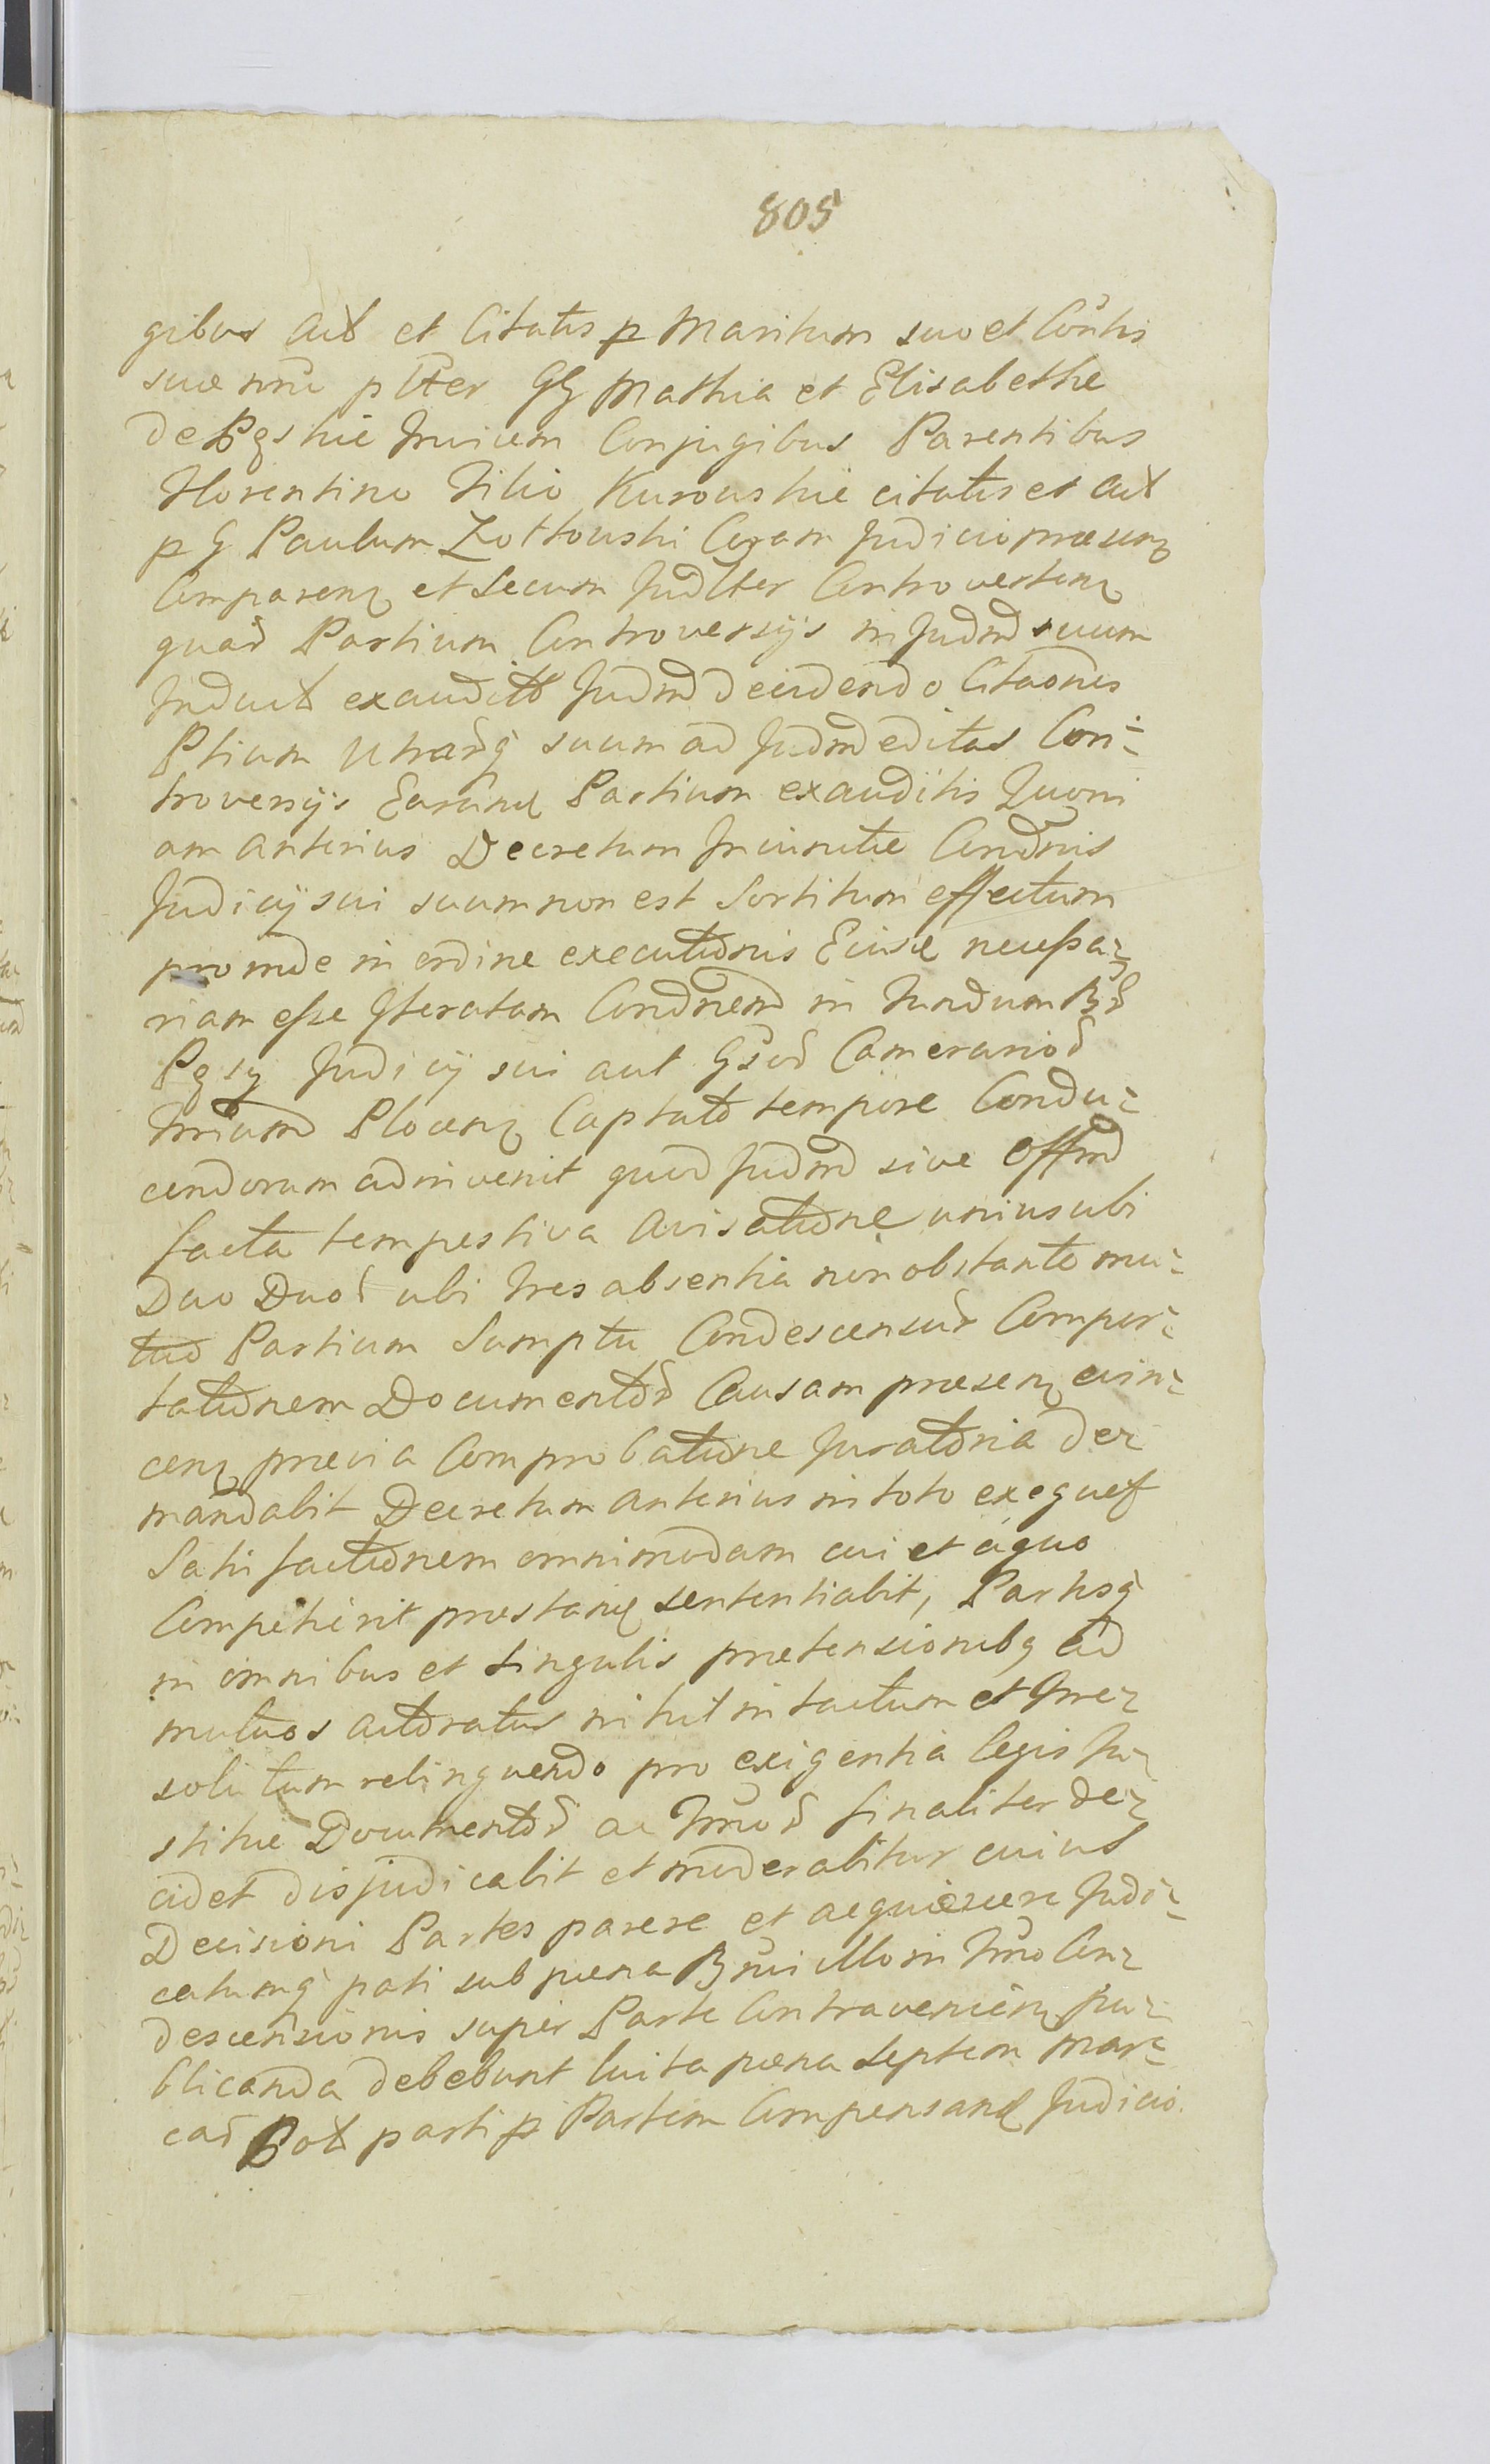 805
gibus Act et Citatis p Maritum suo et Contis
suæ nrie p Ater GG Mathia et Elisabethe
de Pgskie Invicem Conjugibus Parentibus
Florentino Filio Kurowskie citatis et Act
p G Paulum Zottowski Coram Judicio præsenq
Comparenq et Secum Judlter Controvertenq
quar Partium Controversijs in Judnd suum
Induct exauditt Judnd decidendo Citaones
Ptium Utrarq suum ad Judnd editas Con-
troversijs Earund Partium exauditis Quoni
am anterius Decretum Inuimitæ Condnis
Judicij sui suum non est Sortitum effectum
pro inde in ordine executionis Eiusd necessa-
riam esse Iteratam Condnem in Fundum
Pgsy Judicij sui aut Camerarior
Plocenq Captato tempore Condu-
cendorum adinvenit quod Judnd sive Offnd
facta tempestiva Avisatione unius ubi
Duo Duor ubi tres absentia non obstante mu-
tuo Partium Sumptu Condescensur Compor-
tationem Documentor Causam præsenq evin-
cenq prævia Comprobatione Juratoria de-
mandabit Decretum anterius in toto exequet
Satisfactionem omnimodam cui et a quo
Competierit præstand sententiabit, Partesq
in omnibus et singulis prætensionibq ad
mutuos actoratus nihil intactum et Irre-
solutum relinquendo pro exigentia legis Ju-
stitiæ Documentor ac Trnor finaliter de-
cidet disjudicabit et moderabitur cuius
Decisioni Partes parere et acquiescere Judi-
catumq pati sub pæna Bnni illo in Trno Con-
descensionis super Parte Contravenienq pu-
blicanda debebunt luita pæna septem Mar-
car Pol parti p Partem Compensand Judicio.